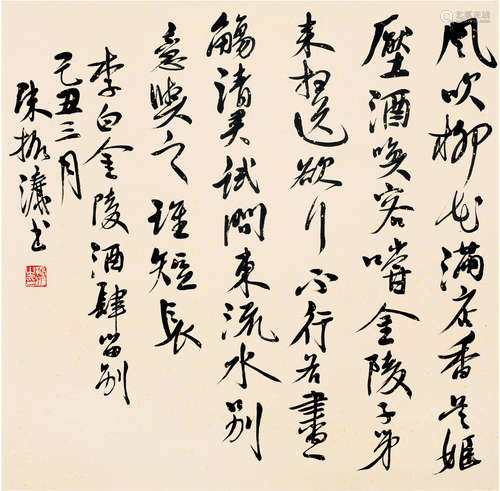 風吹柳花滿店香吴姬
壓酒唤客嚐金陵子弟
来相送欲行不行各盡
觴請君試問東流水别
意與之誰短長
李白金陵酒肆留别
己丑三月
陳振濂书